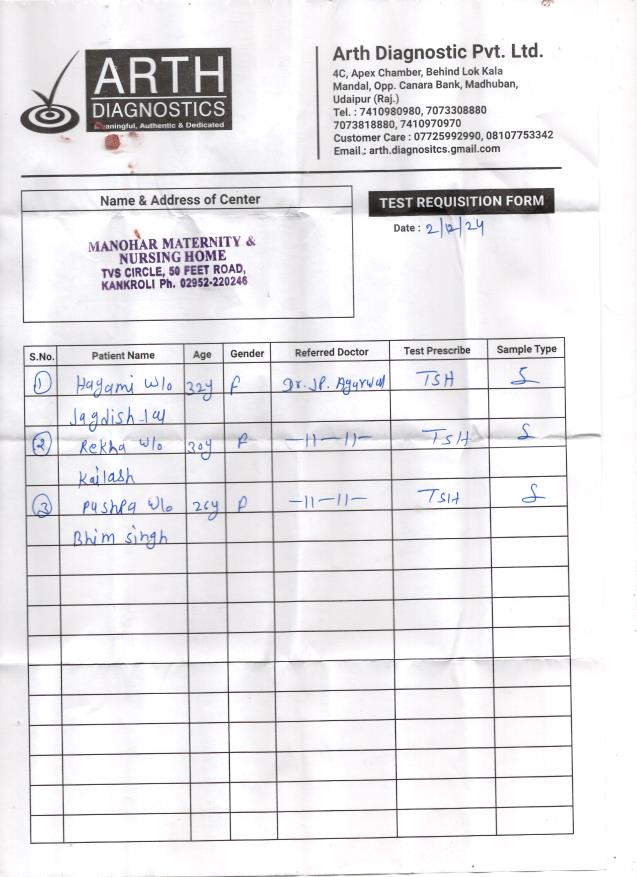 ARTH
DIAGNOSTICS
Meaningful, Authentic & Dedicated
Arth Diagnostic Pvt. Ltd.
4C, Apex Chamber, Behind Lok Kala
Mandal, Opp. Canara Bank, Madhuban,
Udaipur (Raj.)
Tel. : 7410980980, 7073308880
7073818880, 7410970970
Customer Care : 07725992990, 08107753342
Email : arth.diagnositcs.gmail.com
Name & Address of Center
MANOHAR MATERNITY &
NURSING HOME
TVS CIRCLE, 50 FEET ROAD,
KANKROLI Ph. 02952-220246
TEST REQUISITION FORM
Date : 2/12/24
S.No. Patient Name Age Gender Referred Doctor Test Prescribe Sample Type
1 Hagami w/o 32y F Dr. J.P. Agarwal TSH S
Jagdish lal
2 Rekha w/o 30y F -11-11- TSH S
Kailash
3 Pushpa w/o 26y F -11-11- TSH S
Bhim singh